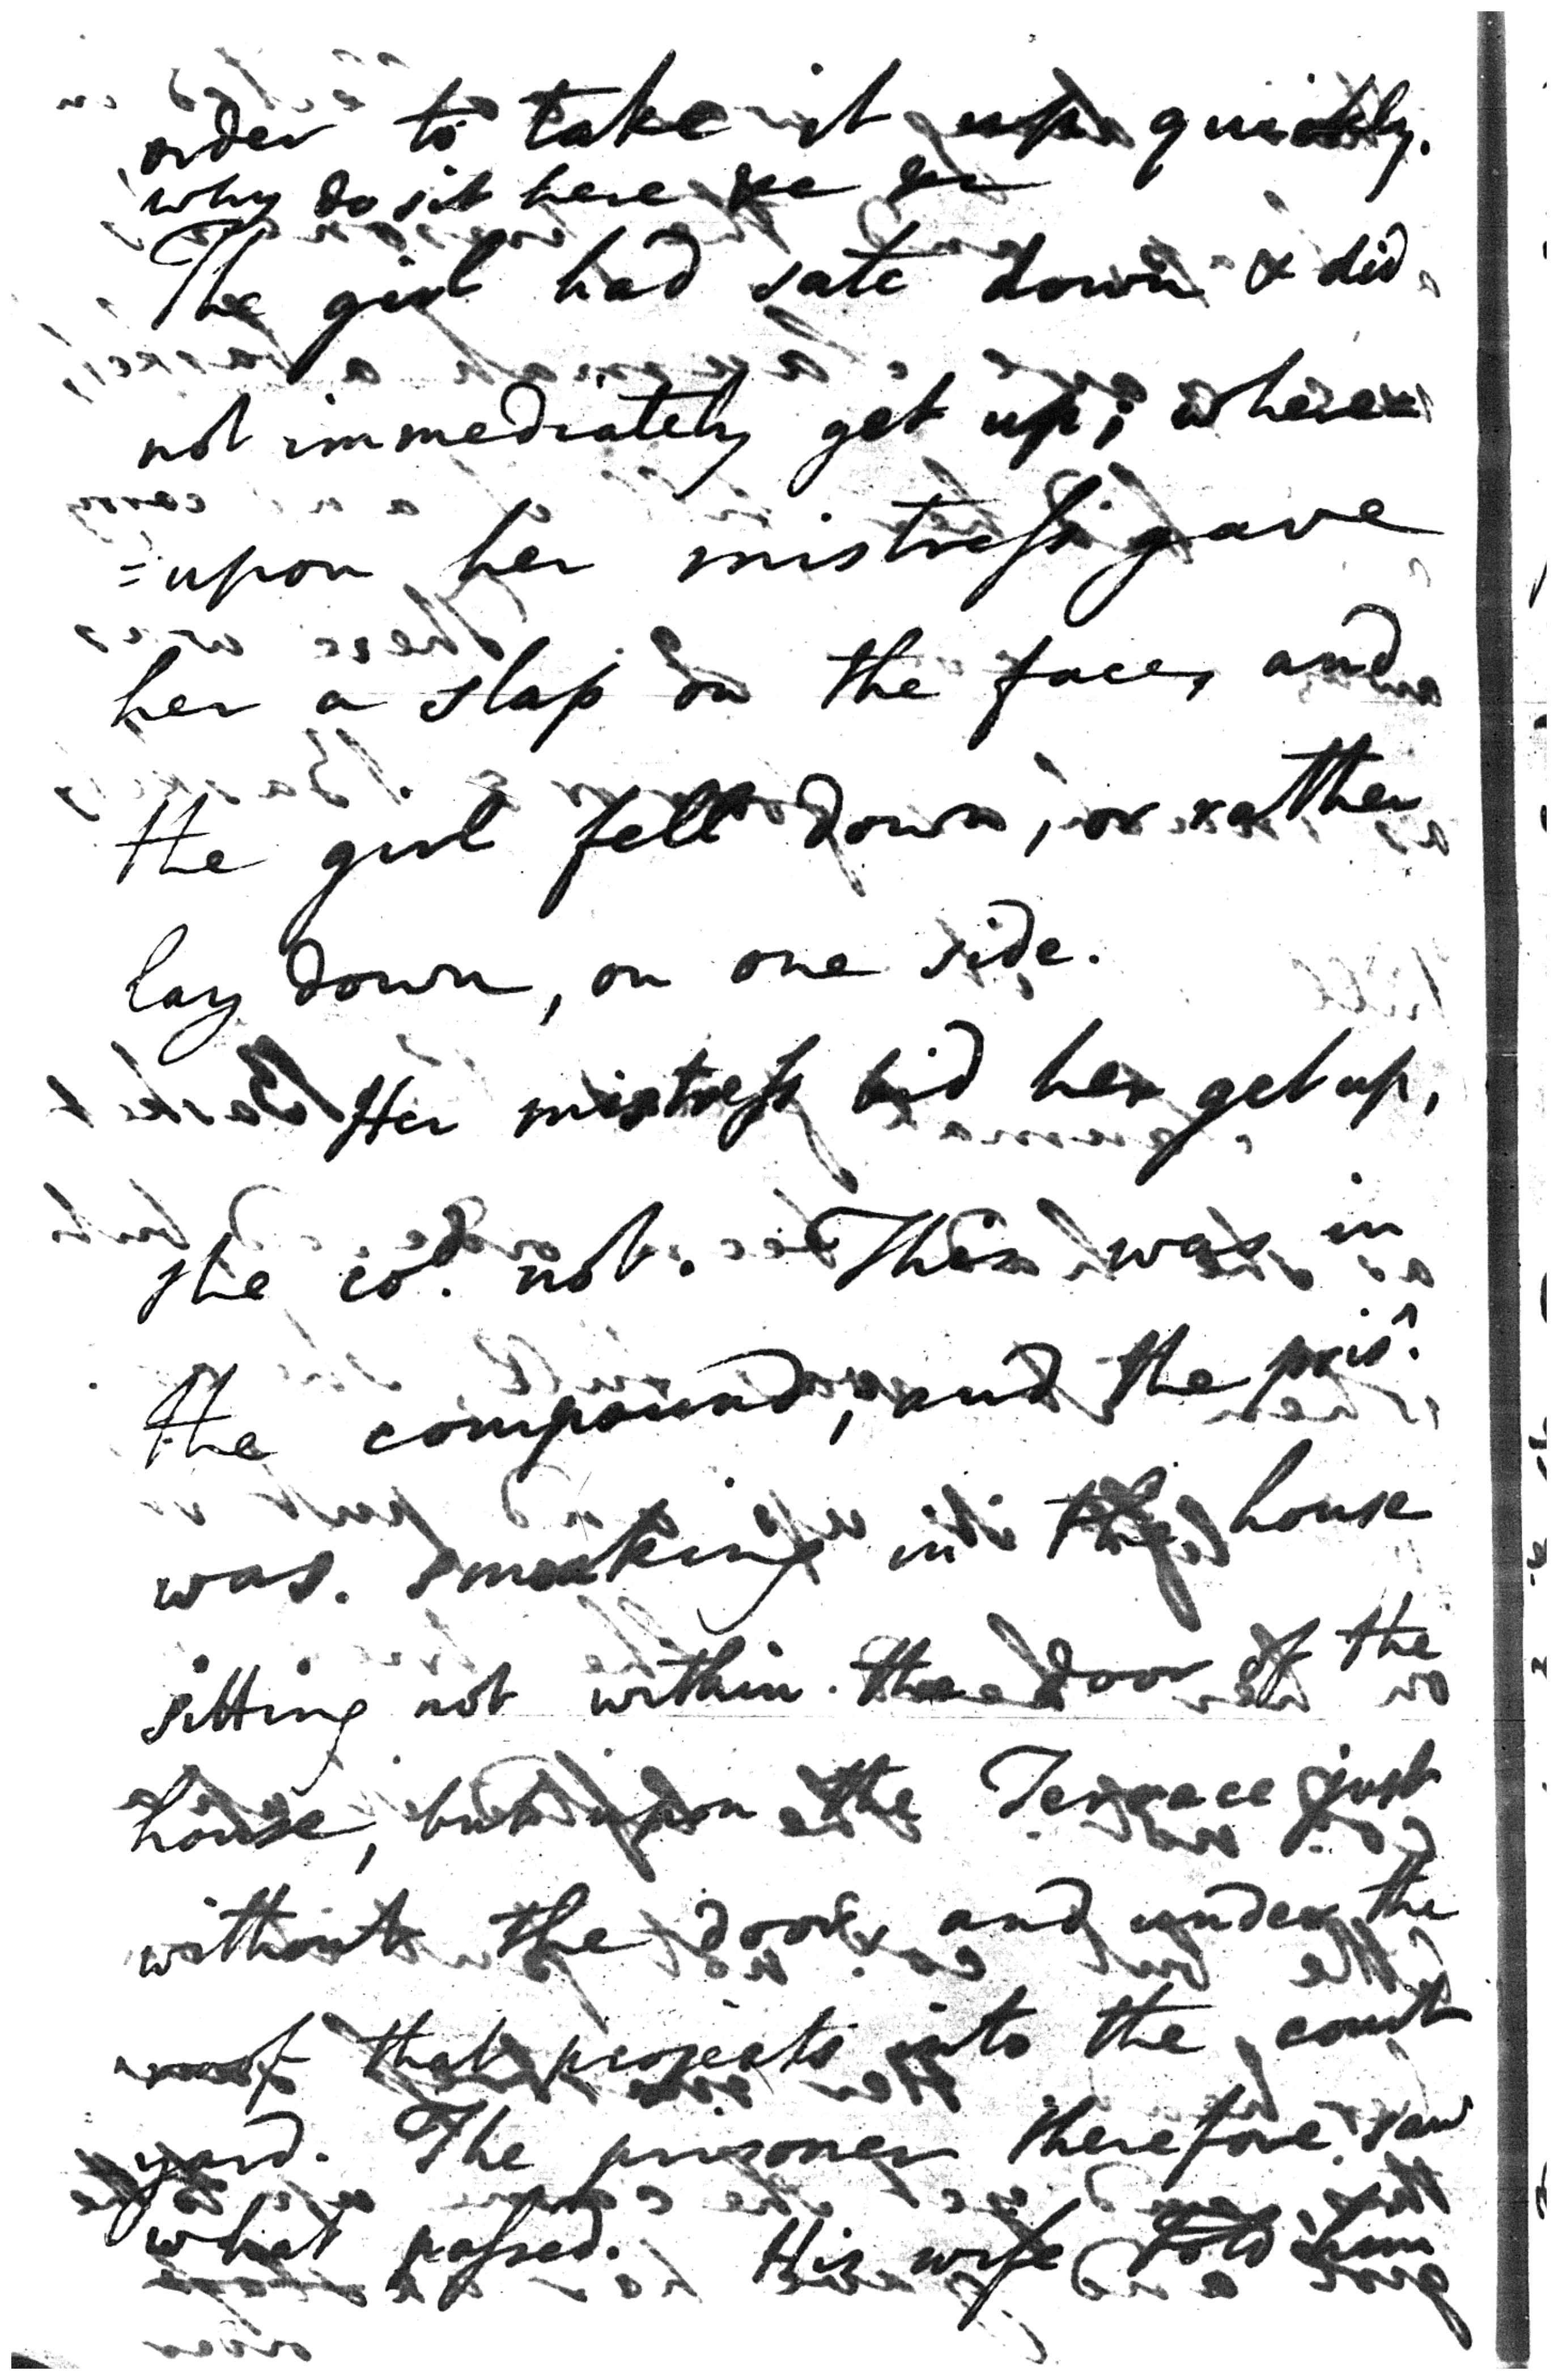 order to take it up quickly.
why do sit here &c &c
The girl had sate down & did
not immediately get up; where
=upon her mistress gave
her a slap on the face, and
the girl fell down, or rather
lay down, on one side.
Her mistress bid her get up,
she cod. not. This was in
the compound, and the pris^r.
was smoking in the house
sitting not within the door of the
house, but upon the Terrace just
without the door, and under the
roof that projects into the court
yard. The prisoner therefore saw
what passed. His wife told him